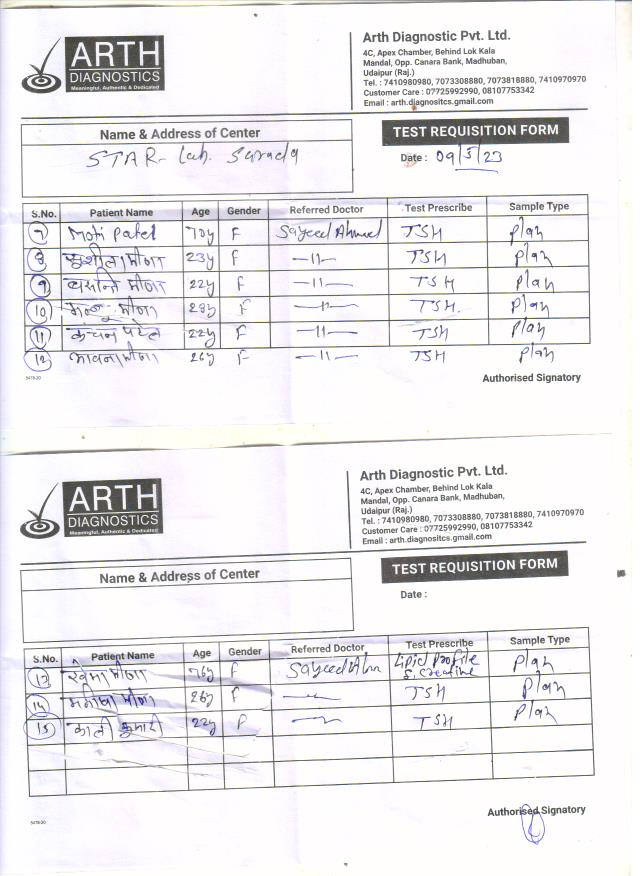 ARTH
DIAGNOSTICS
Meaningful, Authentic & Dedicated
Arth Diagnostic Pvt. Ltd.
4C, Apex Chamber, Behind Lok Kala
Mandal, Opp. Canara Bank, Madhuban,
Udaipur (Raj.)
Tel. : 7410980980, 7073308880, 7073818880, 7410970970
Customer Care : 07725992990, 08107753342
Email : arth.diagnositcs.gmail.com
Name & Address of Center
STAR- Lab. Sarada
TEST REQUISITION FORM
Date : 09/5/23
S.No. Patient Name Age Gender Referred Doctor Test Prescribe Sample Type
7 Moti Patel 70y F Sayeed Ahmed TSH Plan
8 सुशीला मीणा 23y F -11- TSH Plan
9 मीणा 22y F -11- TSH Plan
10 मीणा 28y F -11- TSH. Plan
11 कंचन पटेल 22y F -11- TSH Plan
12 भावना मीणा 26y F -11- TSH Plan
Authorised Signatory
5478-20
ARTH
DIAGNOSTICS
Meaningful, Authentic & Dedicated
Arth Diagnostic Pvt. Ltd.
4C, Apex Chamber, Behind Lok Kala
Mandal, Opp. Canara Bank, Madhuban,
Udaipur (Raj.)
Tel. : 7410980980, 7073308880, 7073818880, 7410970970
Customer Care : 07725992990, 08107753342
Email : arth.diagnositcs.gmail.com
Name & Address of Center
TEST REQUISITION FORM
Date :
S.No. Patient Name Age Gender Referred Doctor Test Prescribe Sample Type
13 मीणा 76y F Sayeed Lipid Profile Plan
S. Creatine
14 मीणा 26y F TSH Plan
15 काली कुमारी 22y F TSH Plan
Authorised Signatory
5478-20